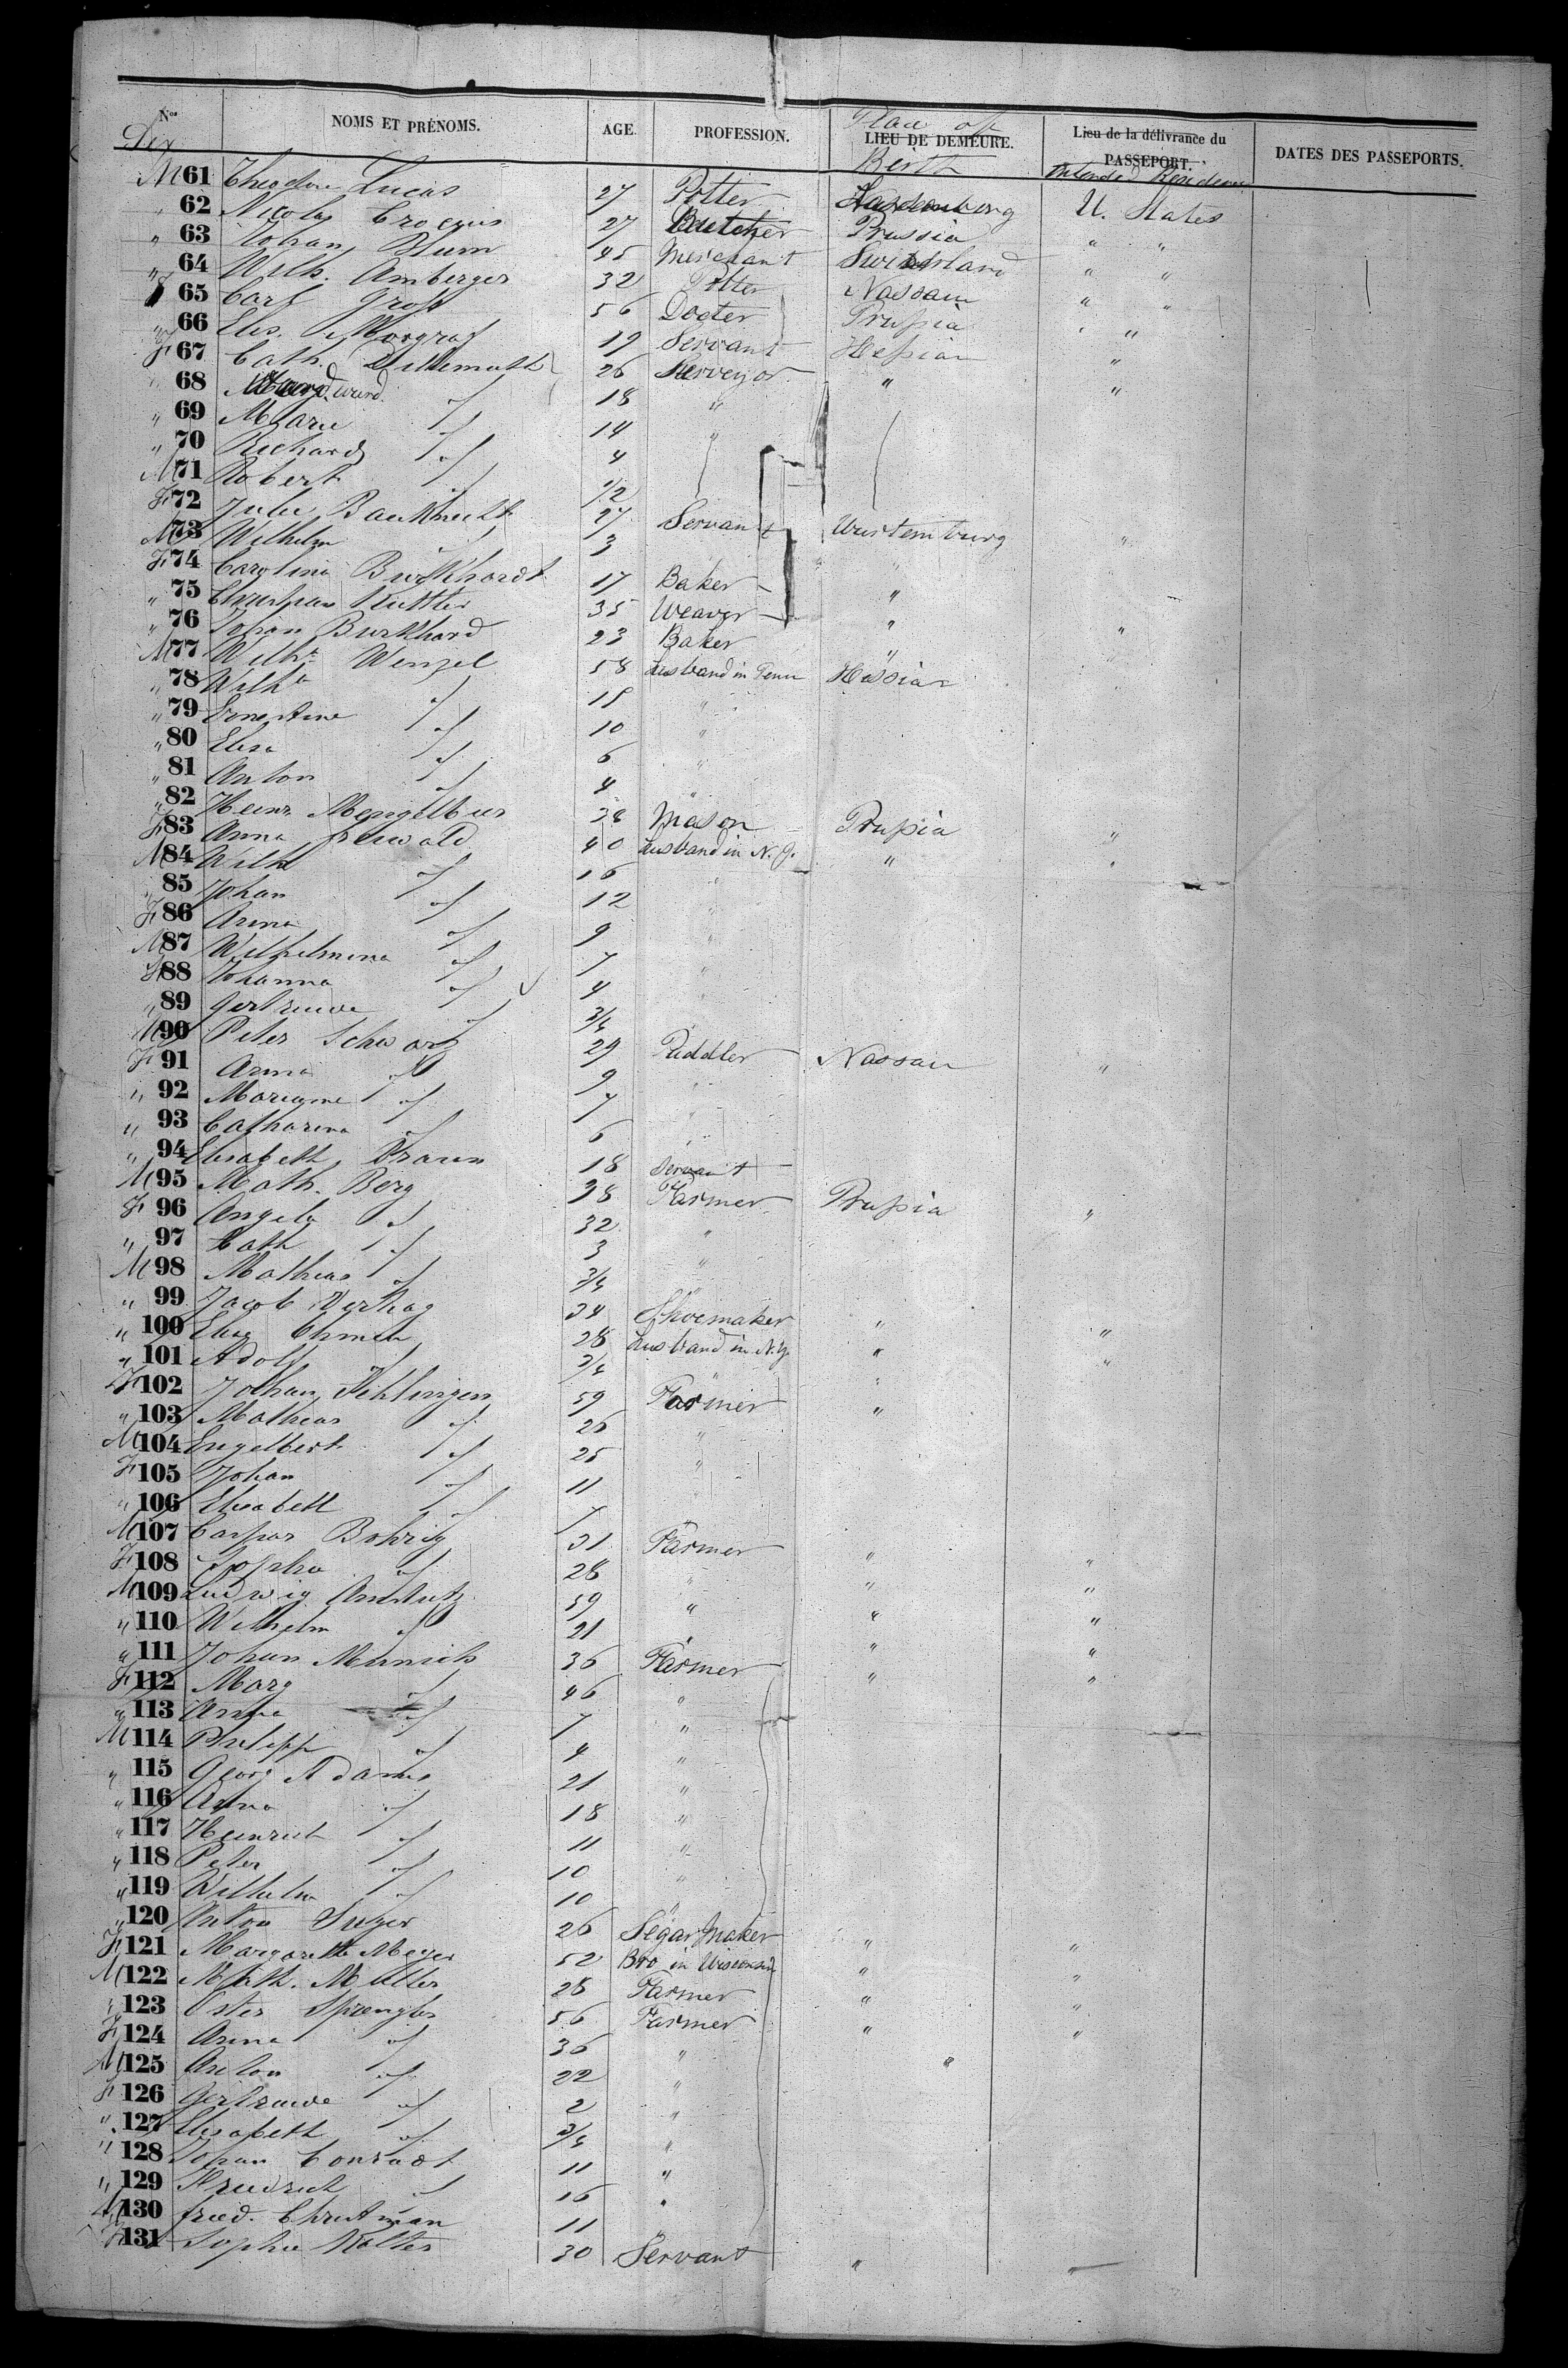 Nos NOMS ET PRÉNOMS. AGE. PROFESSION. Place of LIEU DE DEMEURE. Lieu de la délivrance du PASSEPORT. DATES DES PASSEPORTS.
Sex Berth Intended Residence
M 61 Theodore Lucas 27 Potter U. States
" 62 Nicolas 27 Butcher Prussia " "
" 63 Johan Blum 45 Merchant Switzerland " "
" 64 Wilh. Amberger 32 Potter Nassau " "
65 Carl Groß 56 Docter Prußia " "
" 66 Elis. Morgraf 19 Servant Heßian "
F 67 Cath. 26 Surveyor " "
" 68 18 "
" 69 Marie 14 "
" 70 Richard 4
M 71 Robert 1/2
F 72 Julie Bauknecht 27 Servant Wurtemburg "
M 73 Wilhelm 3 " "
F 74 Carolina Burkhardt 17 Baker "
" 75 Christian Kuttler 35 Weaver "
" 76 Johan Burkhard 23 Baker " "
M 77 Wilhe Wenzel 58 husband in Penn Hessian
" 78 Wilhe 15 "
" 79 Ernestine 10 "
" 80 Elisa 6 "
" 81 Anton 4 "
" 82 Heinr. 38 Mason Prußia "
F 83 Anna 40 husband in N.J. " "
M 84 Wilh 16 "
" 85 Johan 12 "
F 86 Anna 9 "
M 87 Wilhelmina 7 "
F 88 Johanna 4 "
" 89 Gertrude 3/4
M 90 Peter Schwarz 29 Puddler Nassau "
F 91 Anna 9 "
" 92 Mariane 7 "
" 93 Catharina 6 "
" 94 Elisabeth Braun 18 Servant
M 95 Math. Berg 38 Farmer Prußia "
F 96 Angela 32 "
" 97 Cath 3 "
M 98 Mathias 3/4 "
" 99 Jacob 34 Shoemaker " "
" 100 Elise 28 husband in N.Y. " "
" 101 Adolf 3/4 " "
F 102 Johan Fehlingen 59 Farmer "
" 103 Mathias 26 "
M 104 Engelbert 25 "
F 105 Johan 11
" 106 Elisabeth 7 "
M 107 Caspar Bohrig 31 Farmer " "
F 108 Sophie 28 " " "
M 109 Ludwig Amstutz 59 " " "
" 110 Wilhelm 21 " " "
" 111 Johan Munich 36 Farmer " "
F 112 Marg 46 "
" 113 Anna 7 "
M 114 Philipp 4 "
" 115 Georg Adams 21 "
" 116 Anna 18 "
" 117 Heinrich 11 "
" 118 Peter 10 "
" 119 Wilhelm 10 "
" 120 Anton 26 Segar Maker " "
F 121 Margarethe Meyer 52 Bro in Wisconsin " "
M 122 Math. Muller 28 Farmer " "
" 123 Spengler 56 Farmer " "
F 124 Anna 36 "
M 125 Anton 22 "
F 126 Gertrude 2 "
" 127 Elisabeth 3/4 "
" 128 Johan Conradt 11 "
" 129 Friedrich 16 "
M 130 fried. Christman 11 "
F 131 Sophie Kolter 30 Servant " "